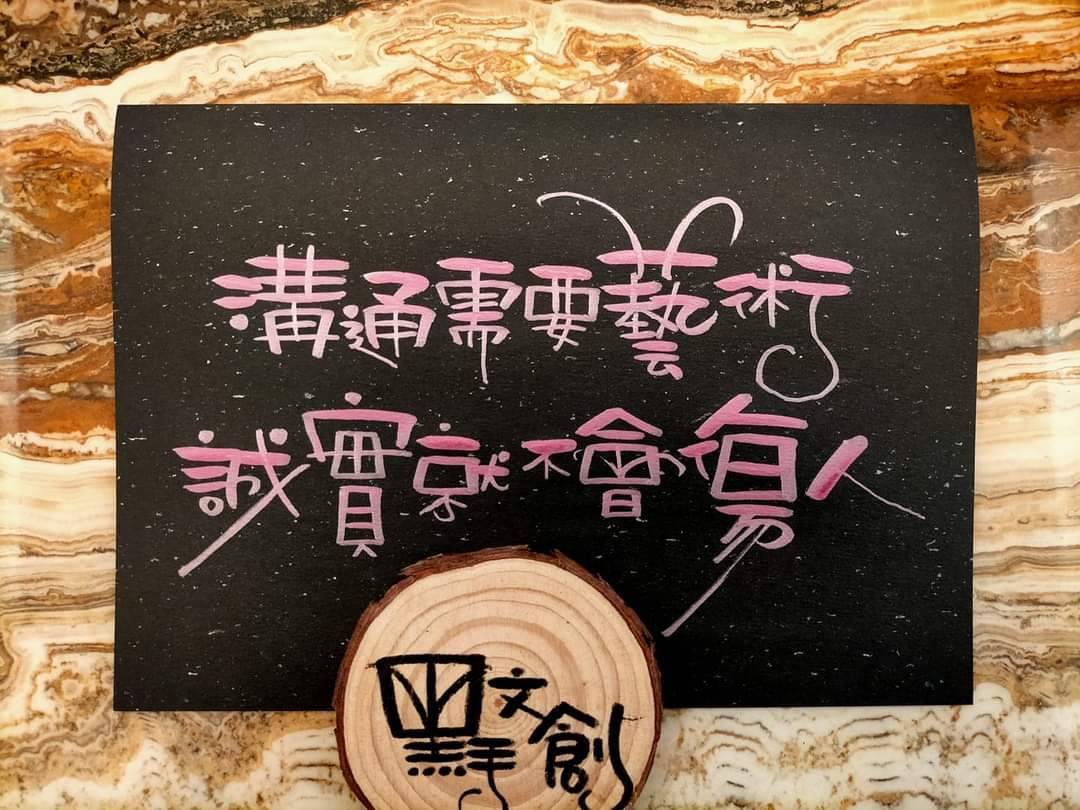 溝通需要藝術
誠實就不會傷人
黑手文創